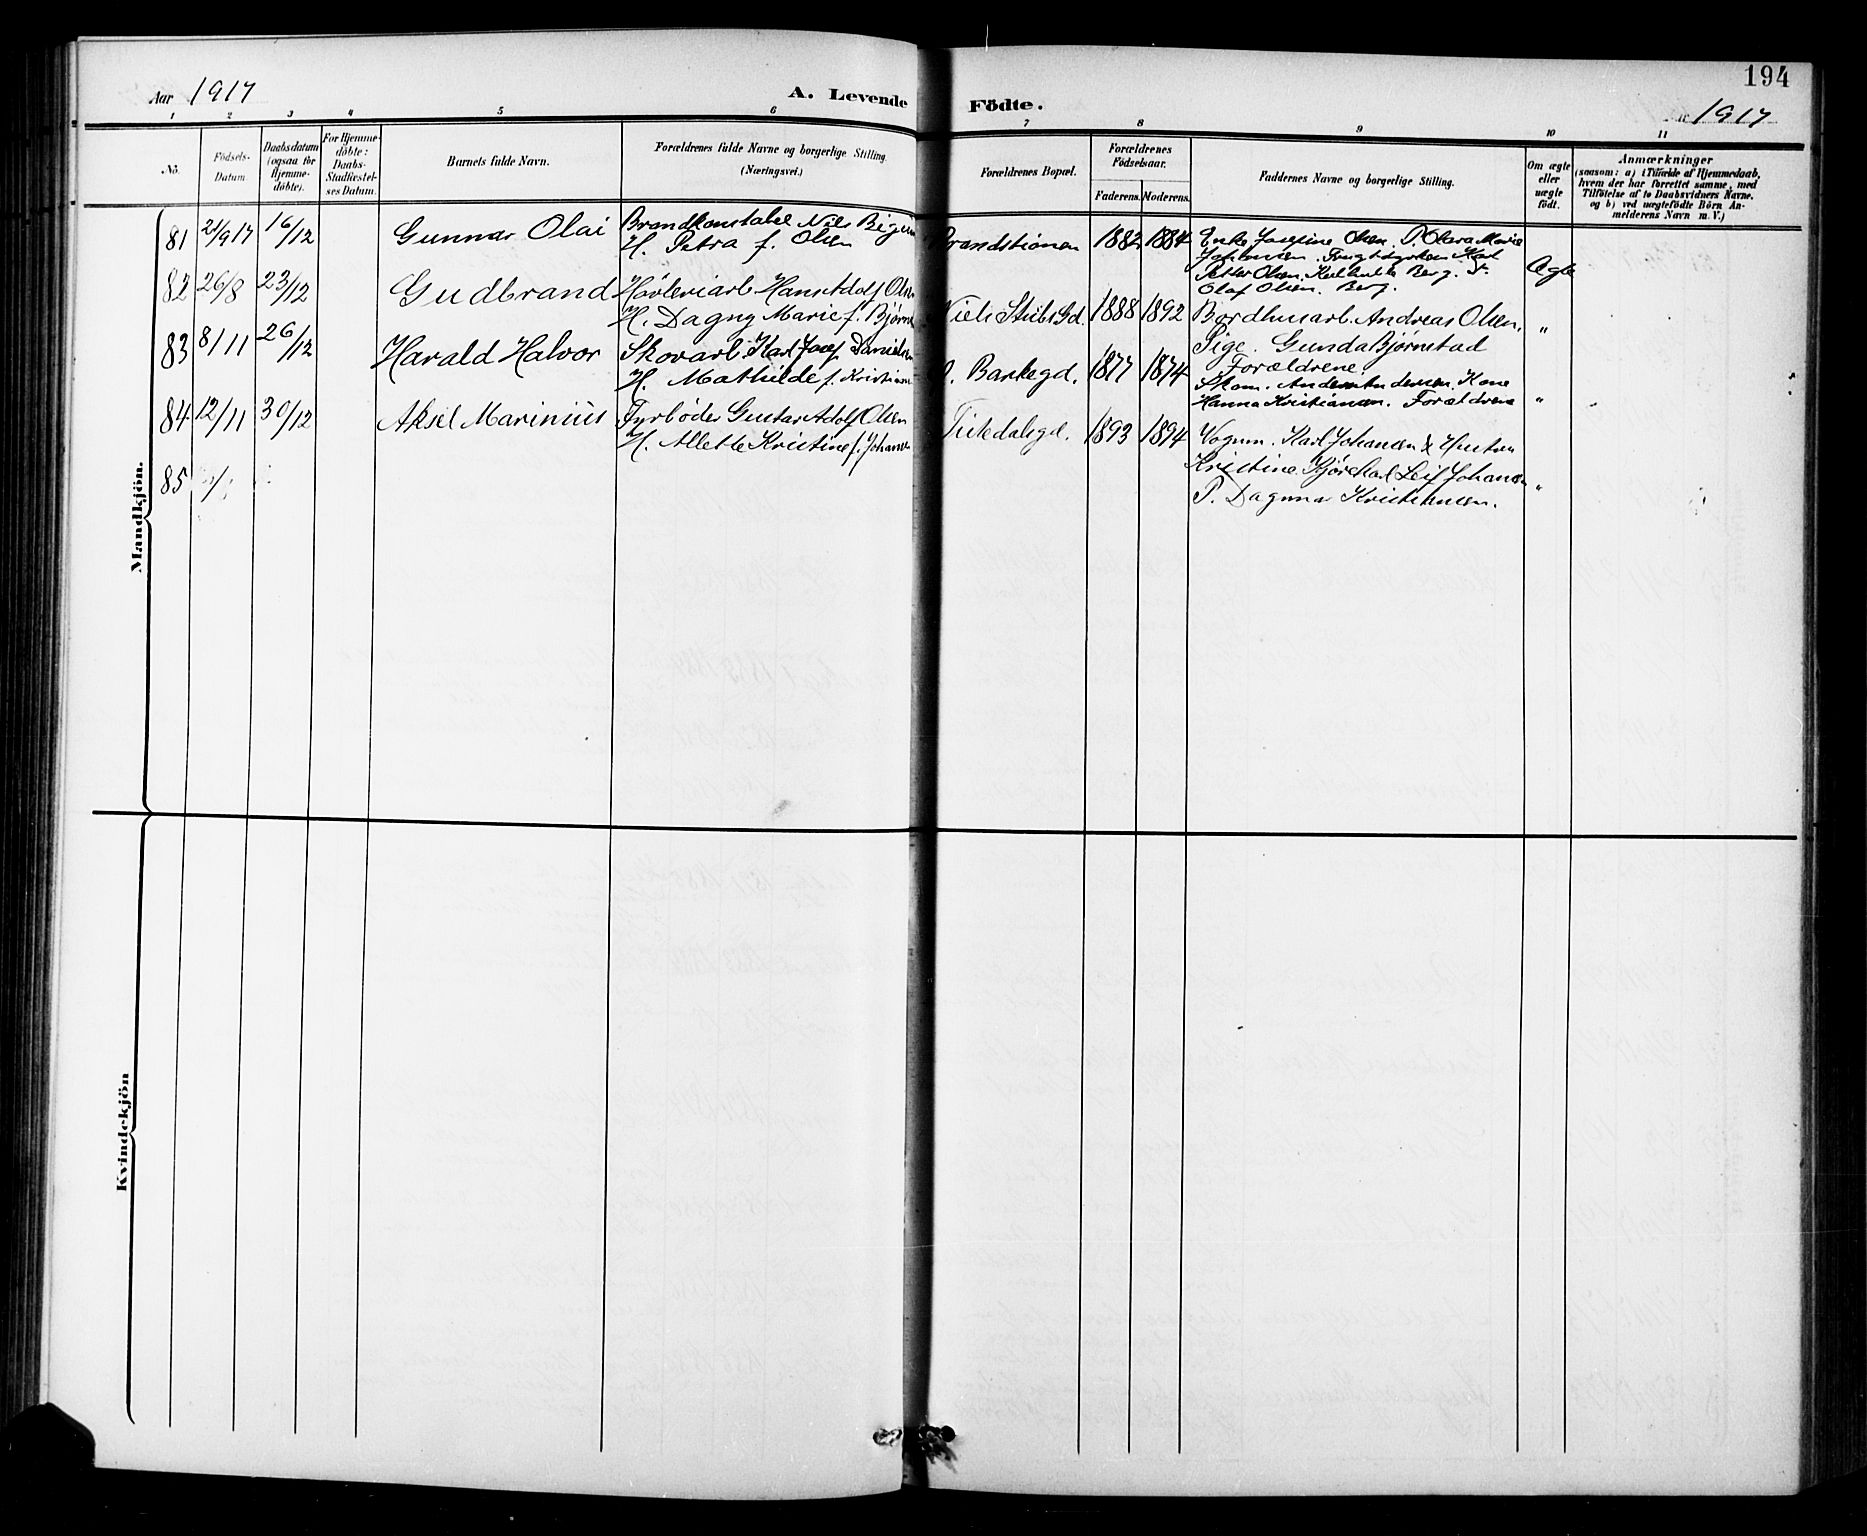 194
Aar 1917 A. Levende Födte. Aar 1917
1 2 3 4 5 6 7 8 9 10 11
No.
Födsels-Datum.
Daabsdatum (ogsaa for Hjemme-döbte).
For Hjemme-döbte: Daabs-Stadfæstel-ses Datum.
Barnets fulde Navn.
Forældrenes fulde Navne og borgerlige Stilling. (Næringsvei.)
Forældrenes Bopæl.
Forældrenes Födselsaar.
Faderens. Moderens.
Faddernes Navne og borgerlige Stilling.
Om ægte eller uægte födt.
Anmærkninger
(saasom: a) i Tilfælde af Hjemmedaab,
hvem der har forrettet samme, med
Tilföielse af to Daabsvidners Navne.
og b) ved uægtefödte Börn An-
melderens Navn m. V.)
Mandkjön.
81 21/9 17 16/12 Gunnar Olai Brandkonstabel Nils
H. Petra f. Olsen
Brandstionen 1882 1884 Enke Josefine Olsen. P. Clara Marie
Johansen. Karl
Petter Olsen. Berg.
Olaf Olsen. Berg.
Ægte
82 26/8 23/12 Gudbrand Høvleriarb. Hans Adolf Olsen
H. Dagny Marie f.
Niels Stubs Gd. 1888 1892 Bordhusarb. Andreas Olsen.
Pige. Gunda Bjørnstad
Forældrene.
"
83 8/11 26/12 Harald Halvor Skovarb. Karl Josef Danielsen
H. Mathilde f.
1877 1874 Skom. Anders Andersen. Kone
Hanna Kristiansen. Forældrene
"
84 12/11 30/12 Aksel Marinius Fyrbøder Gustav Adolf Olsen
H. Allette Kristine f. Johansen
1893 1894 Vognm. Karl Johansen & Hustru
Kristine Leif Johansen
P. Dagmar Kristiansen.
"
85
Kvindekjön